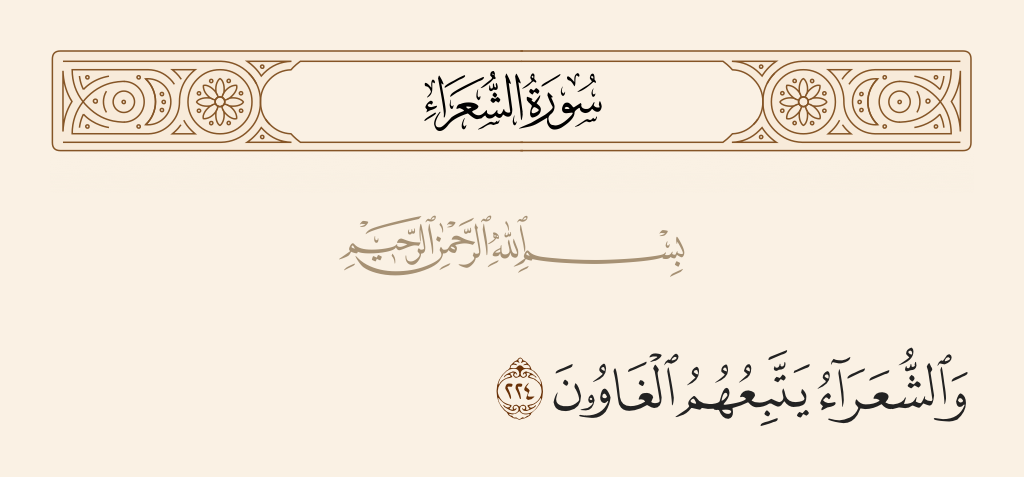 سُورَةُ الشُّعَرَاءِ
بِسْمِ ٱللَّهِ ٱلرَّحْمَٰنِ ٱلرَّحِيمِ
وَٱلشُّعَرَآءُ يَتَّبِعُهُمُ ٱلْغَاوُۥنَ ٢٢٤